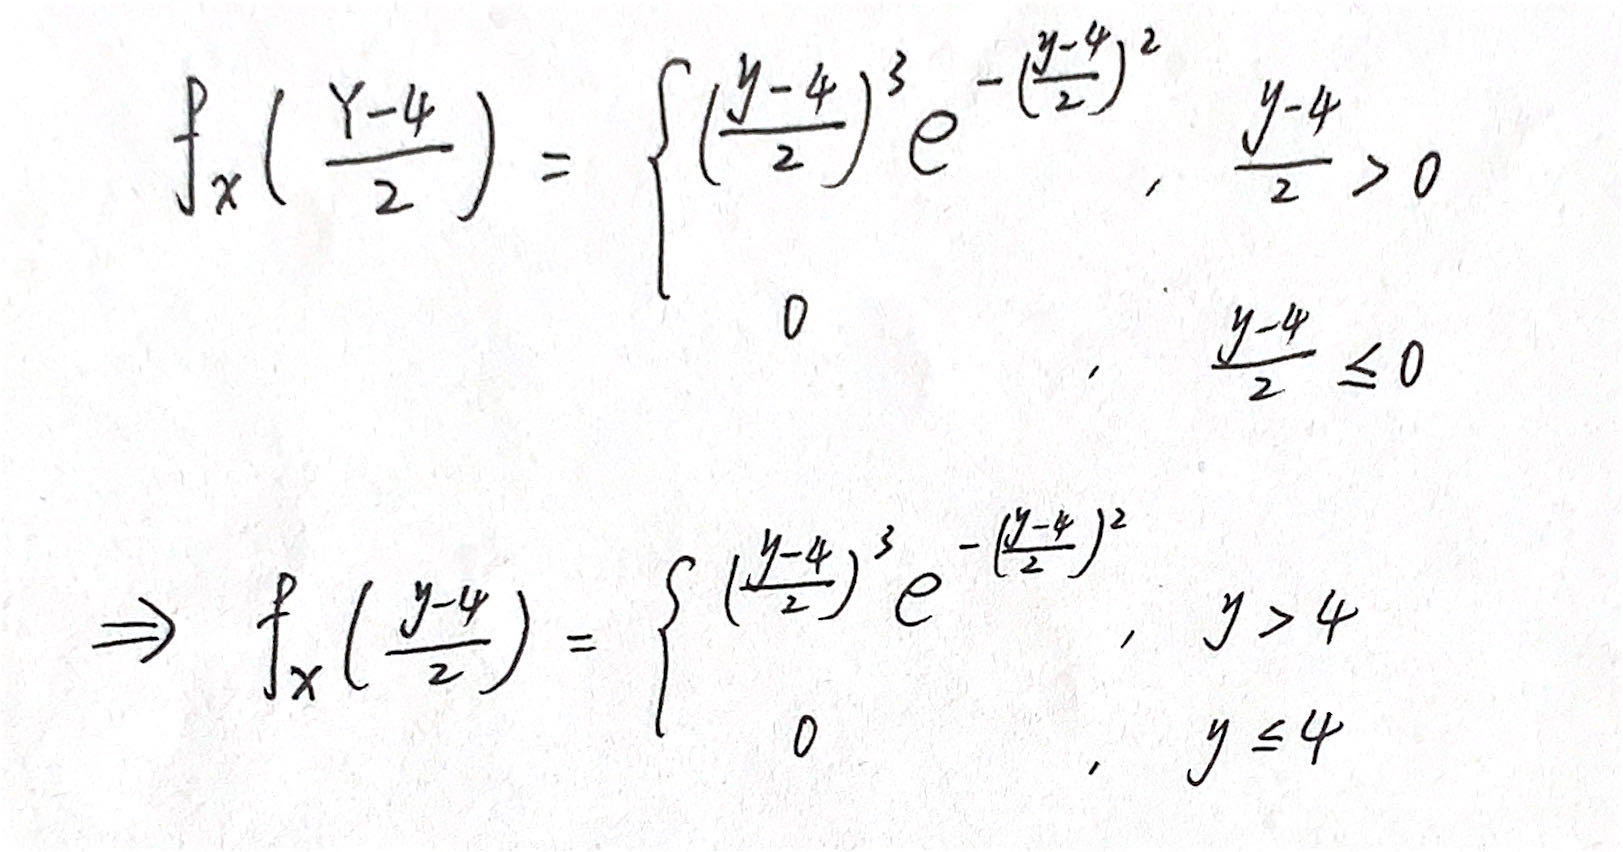 f_x(\frac{Y-4}{2}) = \begin{cases} (\frac{y-4}{2})^3 e^{-(\frac{y-4}{2})^2}, & \frac{y-4}{2} > 0 \\ 0, & \frac{y-4}{2} \leq 0 \end{cases}
\Rightarrow f_x(\frac{y-4}{2}) = \begin{cases} (\frac{y-4}{2})^3 e^{-(\frac{y-4}{2})^2}, & y > 4 \\ 0, & y \leq 4 \end{cases}